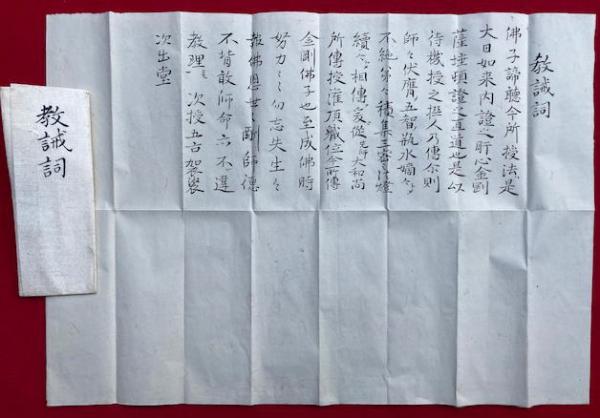 教誡詞
佛子諦聽今所授法是
大日如来内證之肝心金剛
薩埵頓證之直道也是以
待機授之擇人乃傳尓則
師々伏膺五智瓶水嫡々
不絶弟々積集三密法燈
續々相傳爰從先師大和尚
所傳授灌頂職位今前傳
金剛佛子也至成佛時
努力々勿忘失生々
報佛恩世々酬師德
不背敢師命亦不違
教理 次授五古袈裟
次出堂
教誡詞